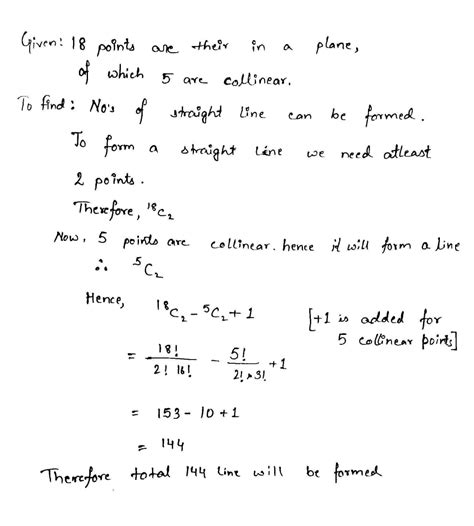 Given: 18 points are their in a plane,
of which 5 are collinear.
To find: No's of straight line can be formed.
To form a straight line we need atleast
2 points.
Therefore, ¹⁸C₂
Now, 5 points are collinear. hence it will form a line
∴ ⁵C₂
Hence, ¹⁸C₂ - ⁵C₂ + 1 [+1 is added for
5 collinear points]
= 18!/2! 16! - 5!/2! × 3! + 1
= 153 - 10 + 1
= 144
Therefore total 144 line will be formed